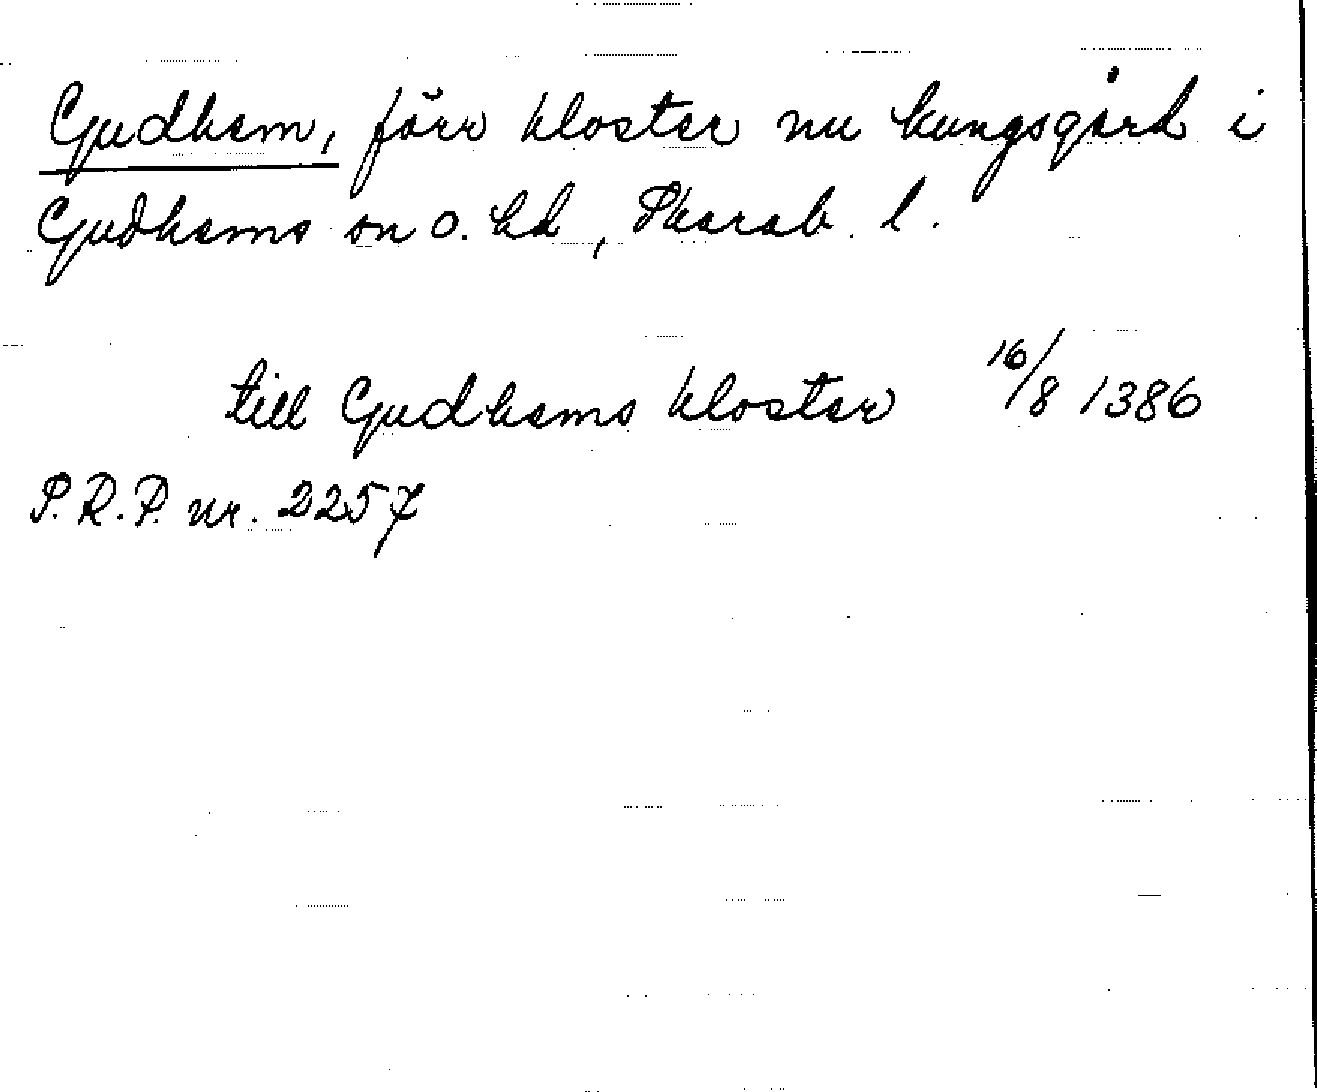 Gudhem, förr kloster nu kungsgård i
Gudhems sn o. hd, Skarab. l.
till Gudhems kloster 16/8 1386
P.R.P. nr. 2257